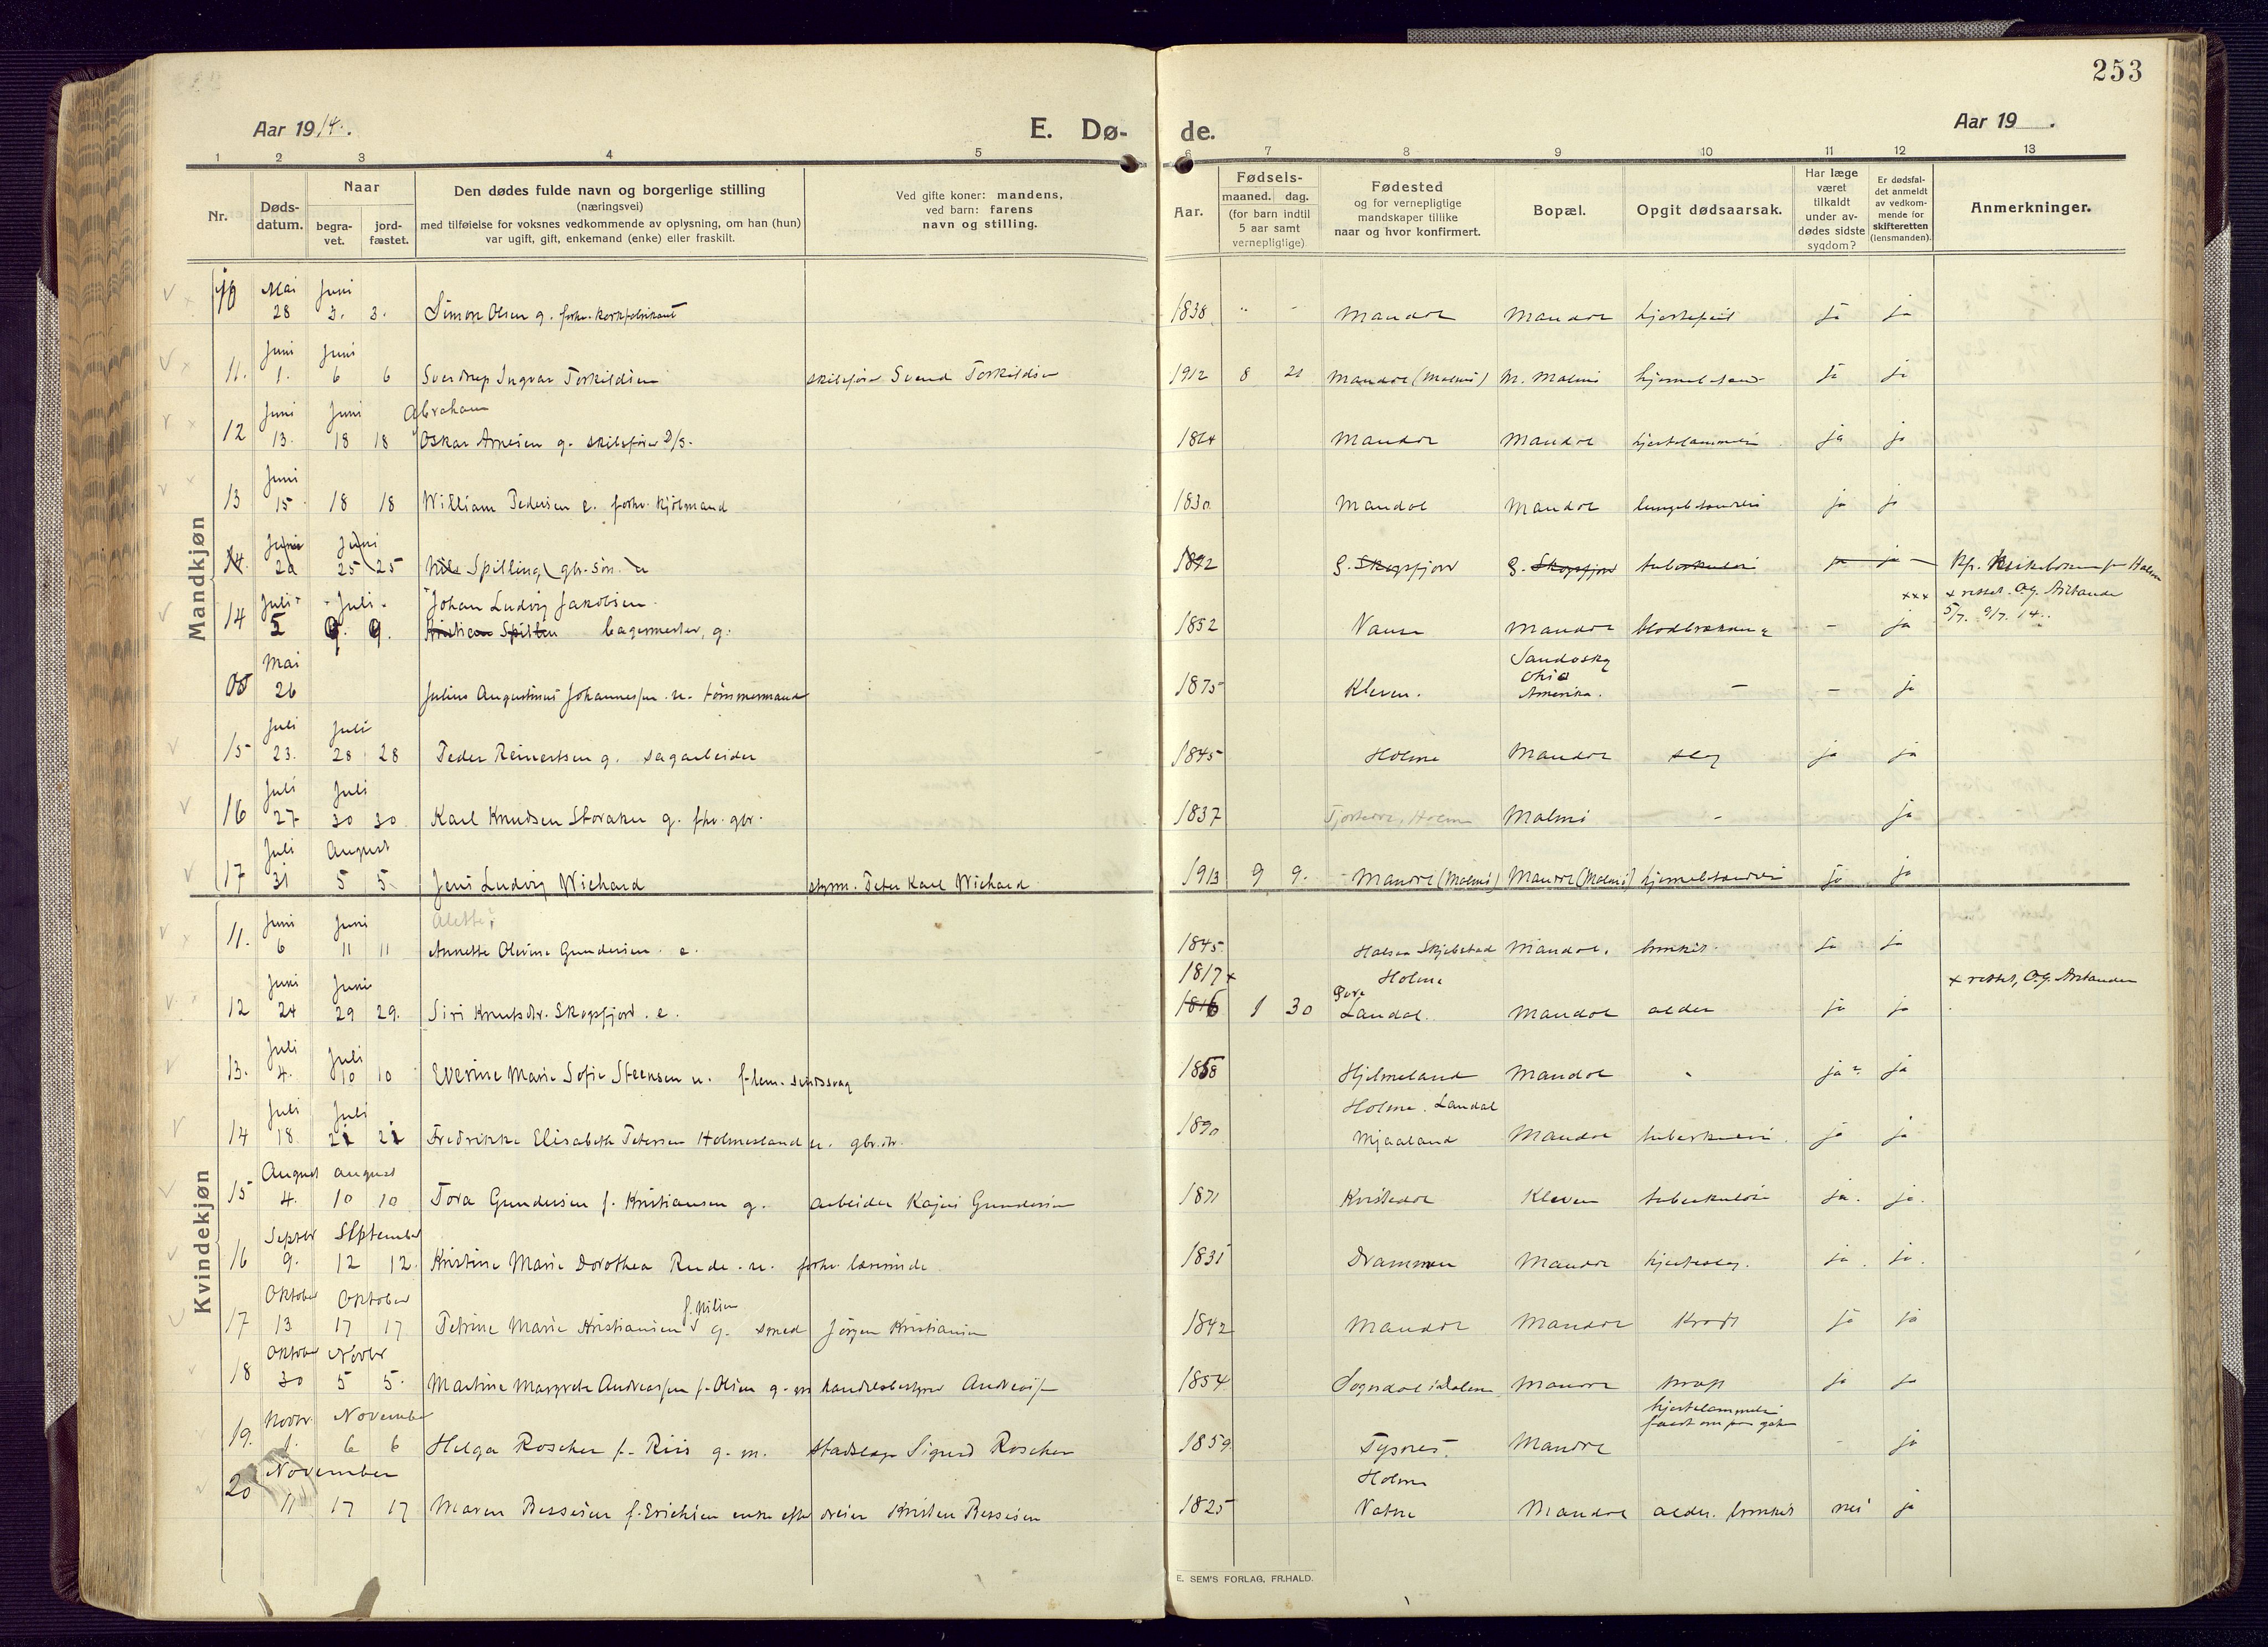 253
Aar 1914.
E. Dø-
de.
Aar 19 .
1 2 3 4 5 6 7 8 9 10 11 12 13
Nr.
Døds-
datum.
Naar
begra-
vet.
jord-
fæstet.
Den dødes fulde navn og borgerlige stilling
(næringsvei)
med tilføielse for voksnes vedkommende av oplysning, om han (hun)
var ugift, gift, enkemand (enke) eller fraskilt.
Ved gifte koner: mandens,
ved barn: farens
navn og stilling.
Aar.
Fødsels-
maaned. dag.
(for barn indtil
5 aar samt
vernepligtige)
Fødested
og for vernepligtige
mandskaper tillike
naar og hvor konfirmert.
Bopæl.
Opgit dødsaarsak.
Har læge
været
tilkaldt
under av-
dødes sidste
sygdom?
Er dødsfal-
det anmeldt
av vedkom-
mende for
skifteretten
(lensmanden).
Anmerkninger.
Mandkjøn
10 Mai Juni
28 3. 3. Simon Olsen g. forhv. korkfabrikant 1838 Mandal Mandal hjertefeil ja ja
Juni Juni
11. 1. 6 6 Sverdrup Ingvar Torkildsen skibsfører Svend Torkildsen 1912 8 21 Mandal (Malmø) M. Malmø ja ja
Juni Juni Abraham
12 13. 18 18 Oskar Arnesen g. skibsfører D/S. 1864 Mandal Mandal hjertelammelse ja ja
Juni
13 15 18 18 William Pedersen e. forhv. kjølmand 1830 Mandal Mandal lungebetændelse ja ja
Juni Juni
14 20 25 25 Nils Spilling gbr. søn. u 1892 S. Skogsfjord S. Skogsfjord tuberkulose ja ja Kfr. Kirkeboken for Halsaa
Juli Juli Johan Ludvig Jakobsen xxx x rettet. O.G. Aistande
14 5 9. 9. Kristian Spillen bagermester, g. 1852 Vanse Mandal blodbrækning - ja 5/7. 9/7. 14.
Mai Sandosky
Ohio
05 26 Julius Augustinus Johannessen u. tømmermand 1875 Kleven. Amerika. - - ja
Juli Juli
15 23. 28 28 Peder Reinertsen g. sagarbeider 1845 Holme Mandal slag ja ja
Juli Juli
16 27 30 30 Karl Knudsen Storaker g. fhv. gbr. 1837 Holme Malmø - ja
Juli August
17 31 5 5 Jens Ludvig Wichard styrm. Peter Karl Wichard 1913 9 9. Mandal (Malmø) Mandal (Malmø) hjernebetændelse ja ja
Kvindekjøn
Juni Juni Alette?
11. 6 11 11 Annette Olevine Gundersen. e. 1845. Halsaa Skjebstad Mandal. brnkit. ja ja
Juni Juni 1817 x Holme x rettet, O.G. Aistanden
12 24 29 29. Siri Knutsdtr. Skogsfjord. e. 1816 1 30 Landal. Mandal alder ja ja
Juli Juli
13. 4. 10 10 Everine Marie Sofie Steensen u. f. lem. sindssvag 1858 Hjelmeland Mandal - ja? ja
Juli Juli Holme. Laudal
14 18. 21 21 Fredrikke Elisabeth Petersen Holmesland u. gbr. dtr. 1890 Mjaaland Mandal tuberkulose. ja ja
August august
15 4. 10 10 Tora Gundersen f. Kristiansen g. arbeider Kajus Gundersen 1871 Kristedal Kleven tuberkulose ja. ja.
Septbr September
16 9. 12 12. Kristine Marie Dorothea Rude. u. forhv. lærerinde 1831 Drammen Mandal hjerteslag. ja. ja.
Oktober Oktober f. Nilsen
17 13 17 17 Petrine Marie Kristiansen g. smed Jørgen Kristiansen 1842 Mandal Mandal Kræft ja ja
Oktober Novbr
18 30 5 5. Martine Margrete Andreassen f. Olsen g. m handelsbestyrer Andreassen 1854 Sogndal i Dalene Mandal kræft ja ja
Novbr. November hjertelammelse
faldt om paa gaten
19. 1. 6 6 Helga Roscher f. Riis g. m. stadslæge Sigurd Roscher 1859. Tysnes. Mandal - ja
November Holme
20 11 17 17 Maren Bessesen f. Erichsen enke efter dreier Kristen Bessesen 1825 Vatne Mandal alder. brnkit nei ja
E. SEM'S FORLAG, FR.HALD.